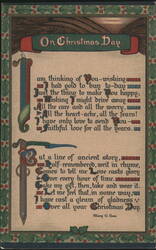 On Christmas Day
I am thinking of You - wishing
I had gold to buy to-day
Just the thing to make You happy;
Wishing I might drive away
All the care and all the worry,
All the heart-ache, all the fears!
I have only love to send You —
Faithful love for all the years.
But a line of ancient story,
Half-remembered, writ in rhyme,
Comes to tell me Love sheds glory
Over every hour of time.
Take my gift, then, take and wear it.
Let me feel that, in some way,
I have cast a gleam of gladness
Over all your Christmas Day.